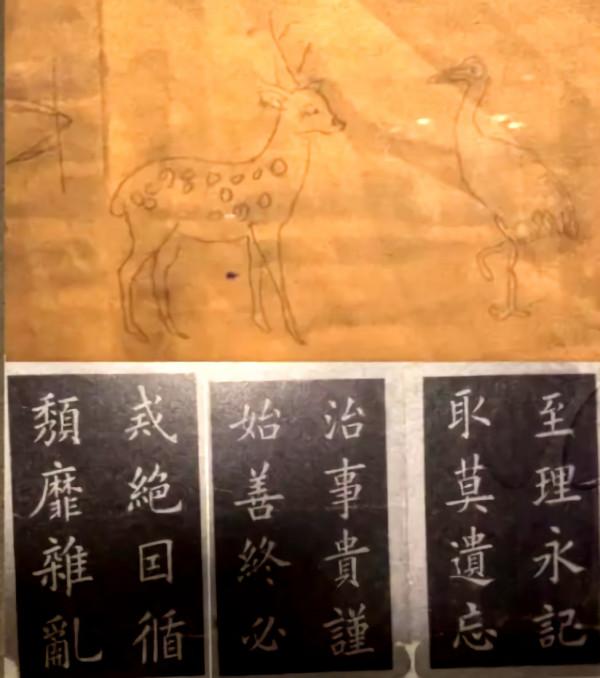 至理永記
取莫遺忘
治事貴謹
始善終必
戒絕囙循
頽靡雜亂